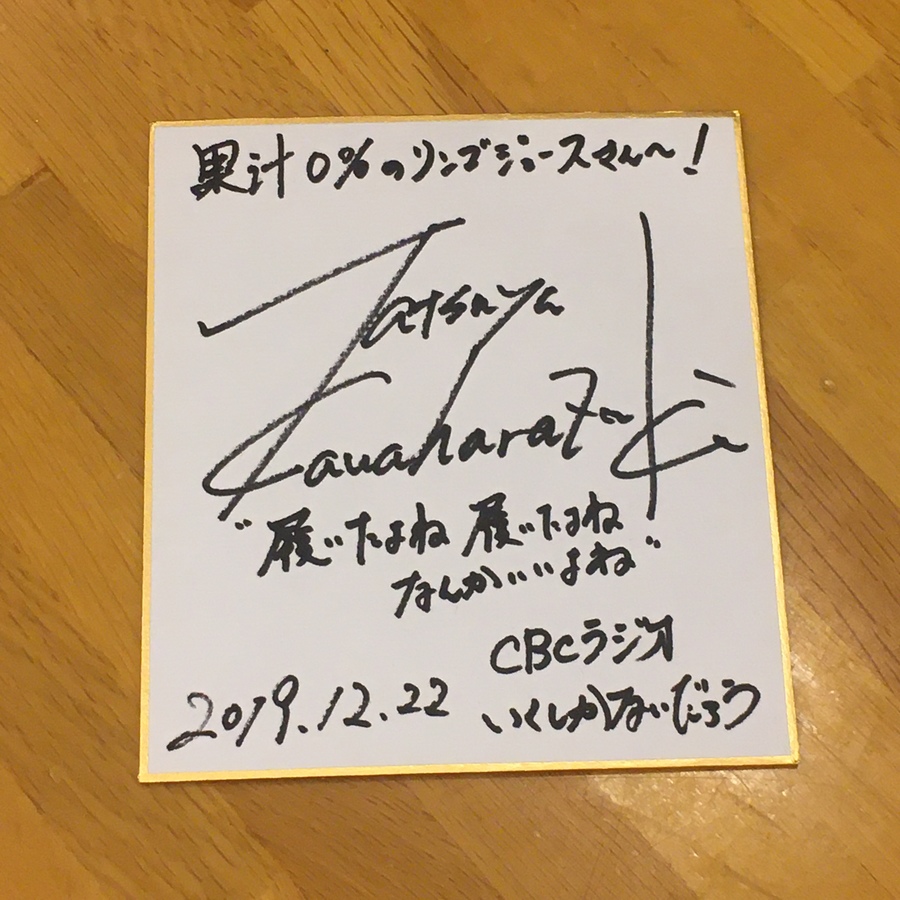 果汁0%のリンゴジュースさん〜!
Tatsuya
Kawaharazuki
"履いたよね 履いたよね
なんかいいよね"
CBCラジオ
2019.12.22
いくしかないだろう